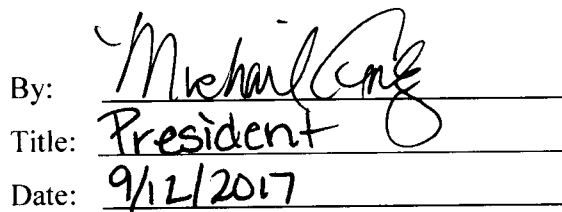 By: Michael
Title: President
Date: 9/12/2017